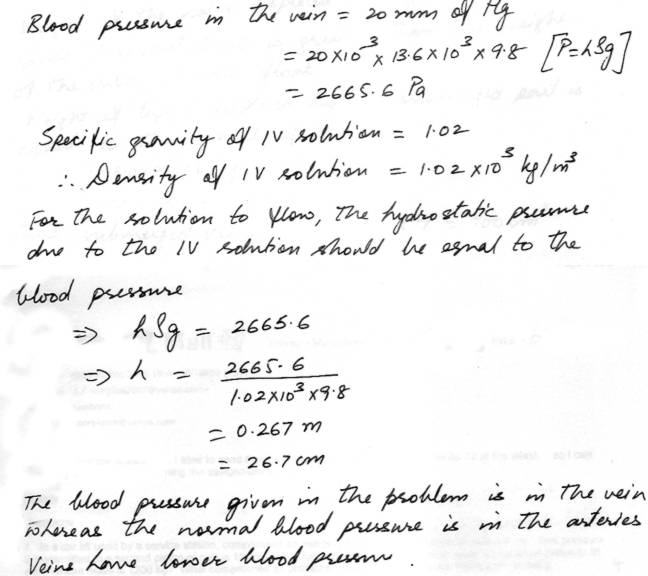 Blood pressure in the vein = 20 mm of Hg
= 20 × 10⁻³ × 13.6 × 10³ × 9.8 [P = hSg]
= 2665.6 Pa
Specific gravity of IV solution = 1.02
∴ Density of IV solution = 1.02 × 10³ kg/m³
For the solution to flow, The hydrostatic pressure
due to the IV solution should be equal to the
blood pressure
⇒ hSg = 2665.6
⇒ h = 2665.6 / 1.02 × 10³ × 9.8
= 0.267 m
= 26.7 cm
The blood pressure given in the problem is in The vein
whereas the normal blood pressure is in The arteries
Veins have lower blood pressure.